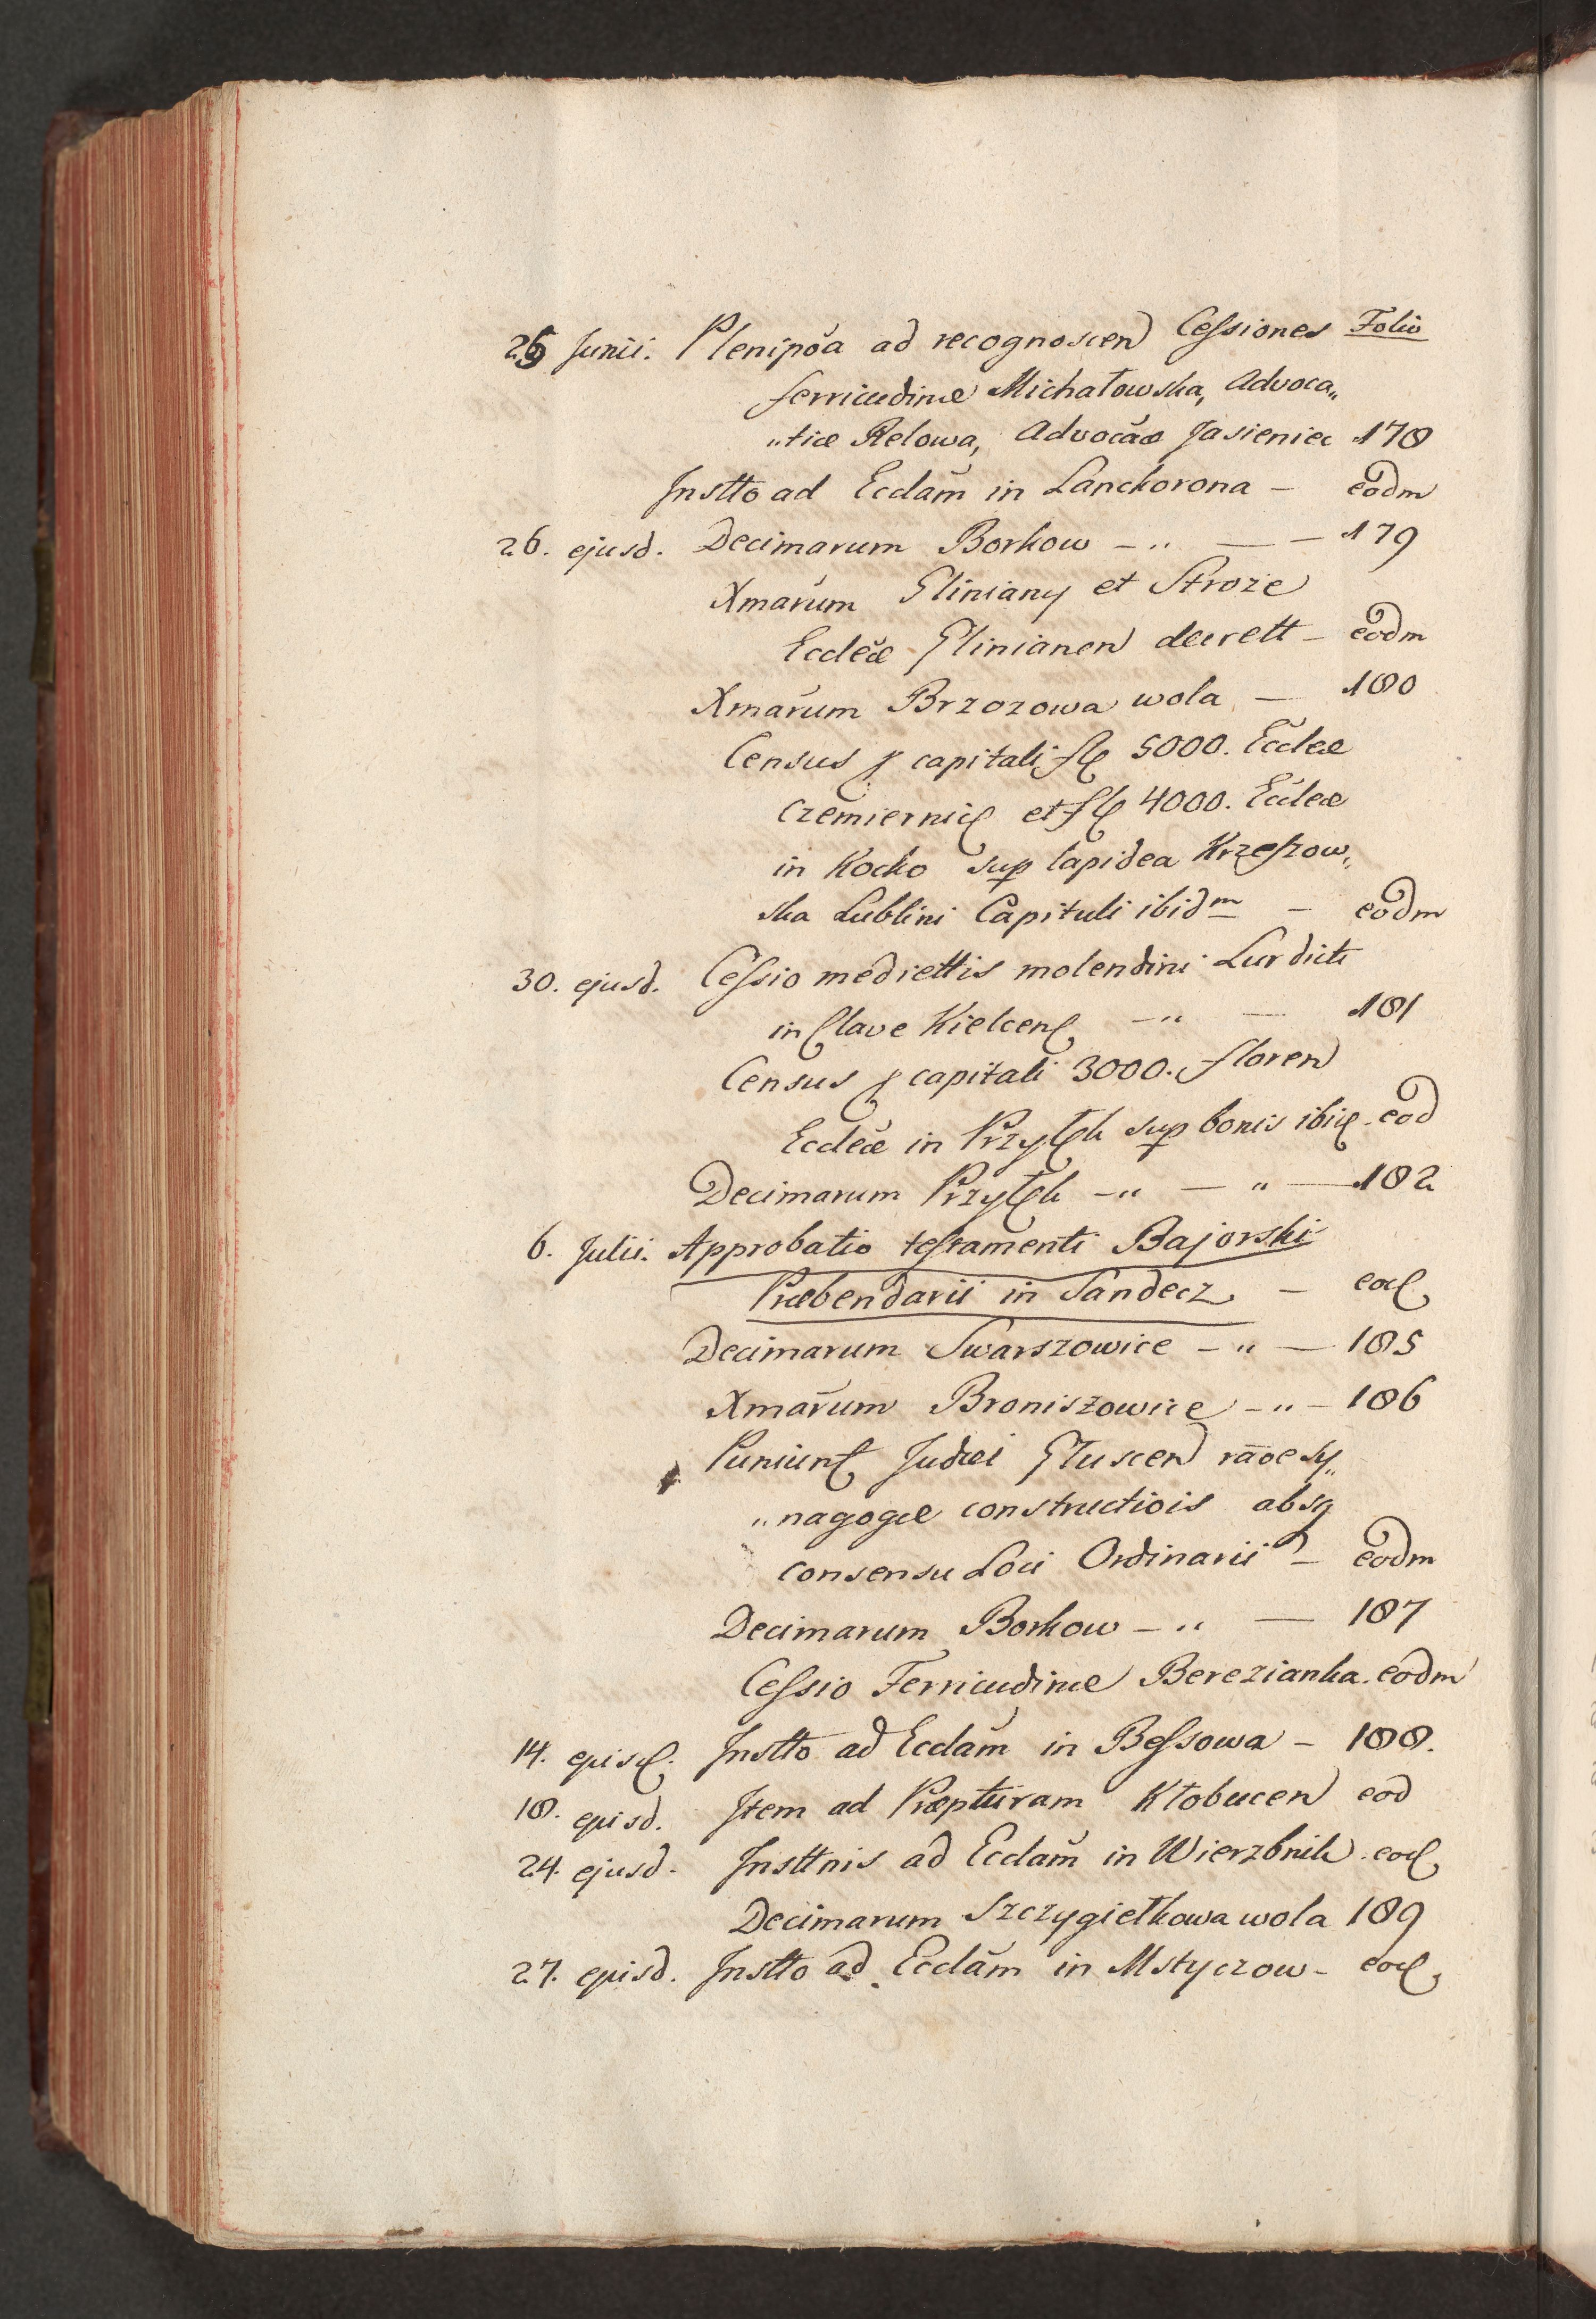 25 Junii. Plenipõa ad recognoscen Cessiones Folio
ferricudinæ Michałowska, Advoca„
„tiæ Relowa, Advocãæ Jasieniec 178
Instto ad Ecclãm in Lanckorona – eodm
26. ejusd. Decimarum Borkow – „ — – 179
Xmarum Gliniany et Stroże
Eccleæ Glinianen decrett – eodm
Xmarum Brzozowa wola — 180
Census a capitali fl 5000. Eccleæ
Czemiernic et fl 4000. Eccleæ
in Kocko sup lapidea Krzeszow„
ska Lublini Capituli ibidm – eodm
30. ejusd. Cessio mediettis molendini Lurdicti
in Clave Kielcen – „ — 181
Census a capitali 3000. floren
Eccleæ in Przytyk sup bonis ibid. eod
Decimarum Przytyk – „ — „ — 182
6. Julii. Approbatio testamenti Bajorski
Præbendarii in Sandecz – eod
Decimarum Swarszowice – „ — 185
Xmarum Broniszowice – „ – 186
Puniunt Judæi Głuscen rãoe sy„
„nagogæ constructiois absq
consensu Loci Ordinarii – eodm
Decimarum Borkow – „ — 187
Cessio Ferricudinæ Berezianka. eodm
14. ejusd. Instto ad Ecclãm in Bessowa – 188.
18. ejusd. Item ad Præpturam Kłobucen eod
24. ejusd. Insttnis ad Ecclãm in Wierzbnik. eod
Decimarum Szczygiełkowa wola 189
27. ejusd. Instto ad Ecclãm in Mstyczow – eod